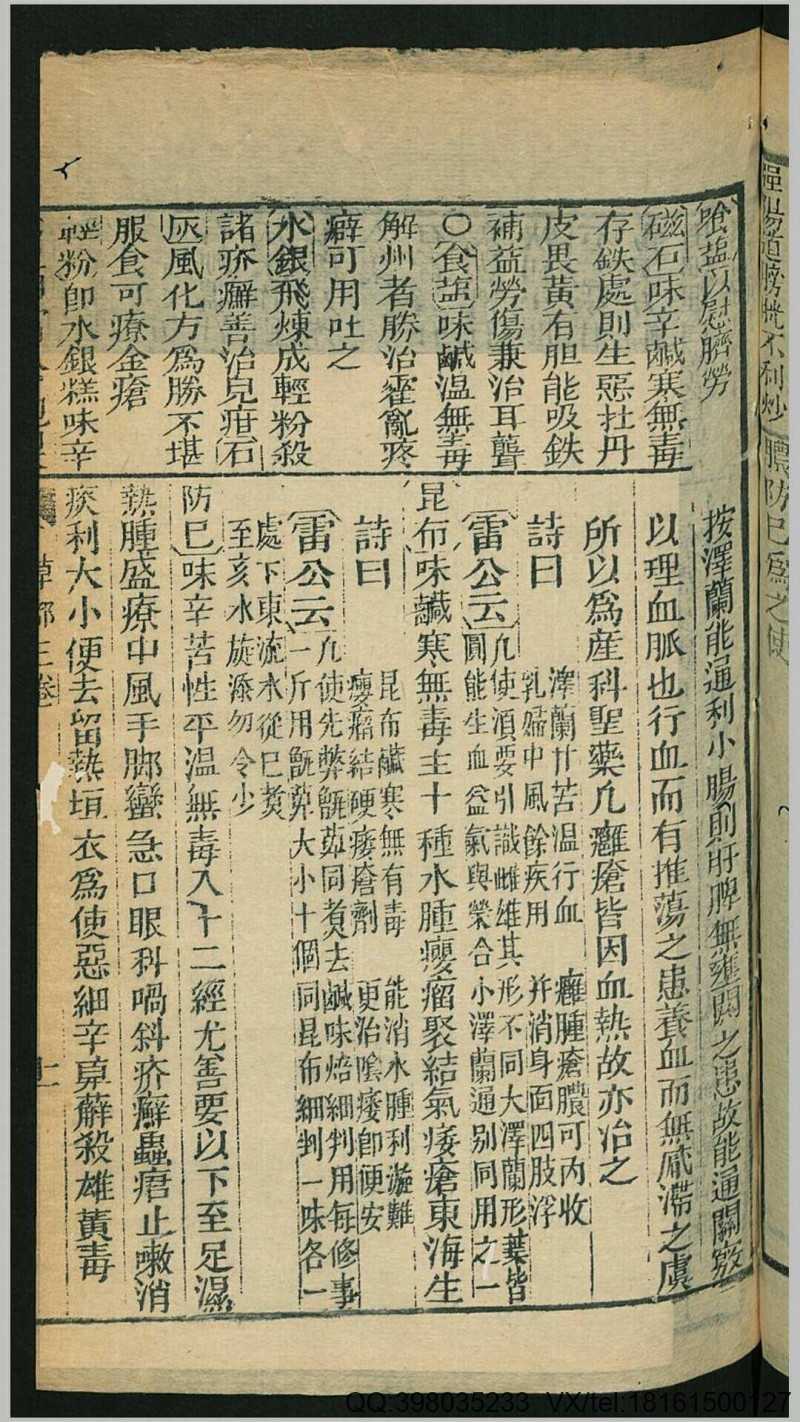 飡盐以慰臍勞
磁石味辛鹹寒無毒
存鉄處則生惡牡丹
皮畏黃有胆能吸鉄
補益勞傷兼治耳聾
〇食盐味鹹溫無毒
解州者勝治霍亂疼
癖可用吐之
水銀飛煉成輕粉殺
諸疥癬善治兒疳石
灰風化方爲勝不堪
服食可療金瘡
輕粉即水銀糕味辛
按澤蘭能通利小腸則肝脾無壅閼之患故能通關竅
以理血脈也行血而有推蕩之患養血而無凝滯之虞
所以爲産科聖藥凢癰瘡皆因血熱故亦冶之
詩曰
澤蘭甘苦溫行血 癰腫瘡膿可內收
乳婦中風餘疾用 并消身面四肢浮
雷公云
凢使湏要引識雌雄其形不同大澤蘭形葉皆
圓能生血益氣與榮合小澤蘭通别同用之一
昆布味鹹寒無毒主十種水腫癭瘤聚結氣瘻瘡東海生
詩曰
昆布鹹寒無有毒 能消水腫利漩難
癭瘤結硬瘻瘡劑 更治陰㾞即便安
雷公云
凢使先弊甑箄同煑去鹹味焙細判用每修事
一斤用甑箄大小十個同昆布細判一味各一
處下東流水從巳煑
至亥水旋添勿令少
防巳味辛苦性平溫無毒入十二經尤善要以下至足濕
熱腫盛療中風手脚攣急口眼科喎斜疥癬蟲瘡止嗽消
痰利大小便去留熱垣衣爲使惡細辛萆薢殺雄黃毒
草部三卷
QQ:398035233 VX/tel:18161500127